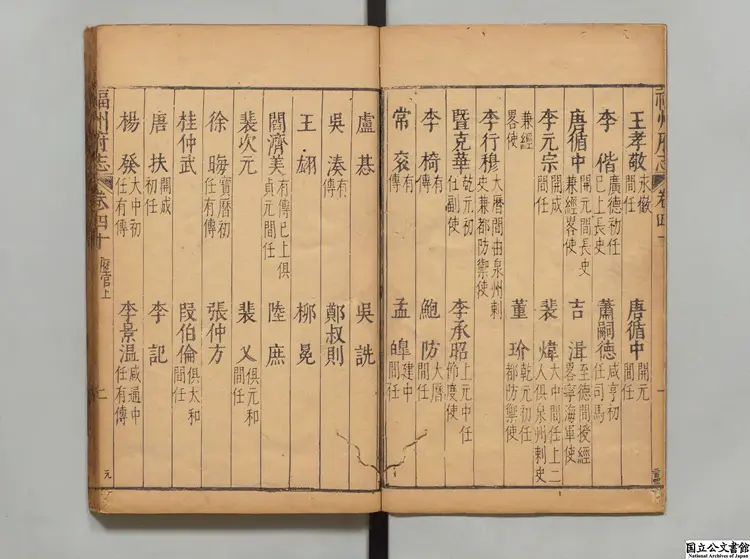 王孝敬 永徽間任 唐循中 開元間任
李偕 廣德初任已上長史 蕭嗣德 咸亨初任司馬
唐循中 開元間長史兼經畧使 吉渥 至德間授經畧寧海軍使
李元宗 開成間任 裴煒 大中間任上二人俱泉州刺史
兼經畧使 董玠 乾元初任都防禦使
李行穆 大曆間由泉州刺史兼都防禦使
暨克華 乾元初任副使 李承昭 上元中任節度使
李椅 有傳 鮑防 大曆間任
常袞 有傳 孟皥 建中間任
盧惎 吳詵
吳湊 有傳 鄭叔則
王翃 柳冕
閻濟美 有傳已上俱貞元間任 陸庶
裴次元 裴乂 俱元和間任
徐晦 寶曆初任有傳 張仲方
桂仲武 段伯倫 俱太和間任
唐扶 開成初任 李記
楊發 大中初任有傳 李景温 咸通中任有傳
福州府志 卷四十 歷官上
元
国立公文書館
National Archives of Japan